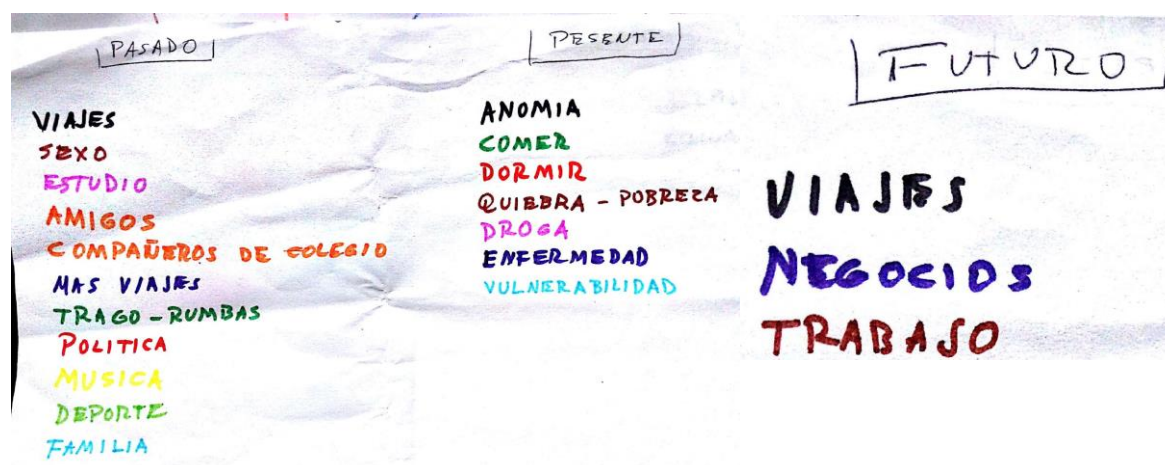 PASADO
VIAJES
SEXO
ESTUDIO
AMIGOS
COMPAÑEROS DE COLEGIO
MAS VIAJES
TRAGO - RUMBAS
POLITICA
MUSICA
DEPORTE
FAMILIA
PESENTE
ANOMIA
COMER
DORMIR
QUIEBRA - POBREZA
DROGA
ENFERMEDAD
VULNERABILIDAD
FUTURO
VIAJES
NEGOCIOS
TRABAJO